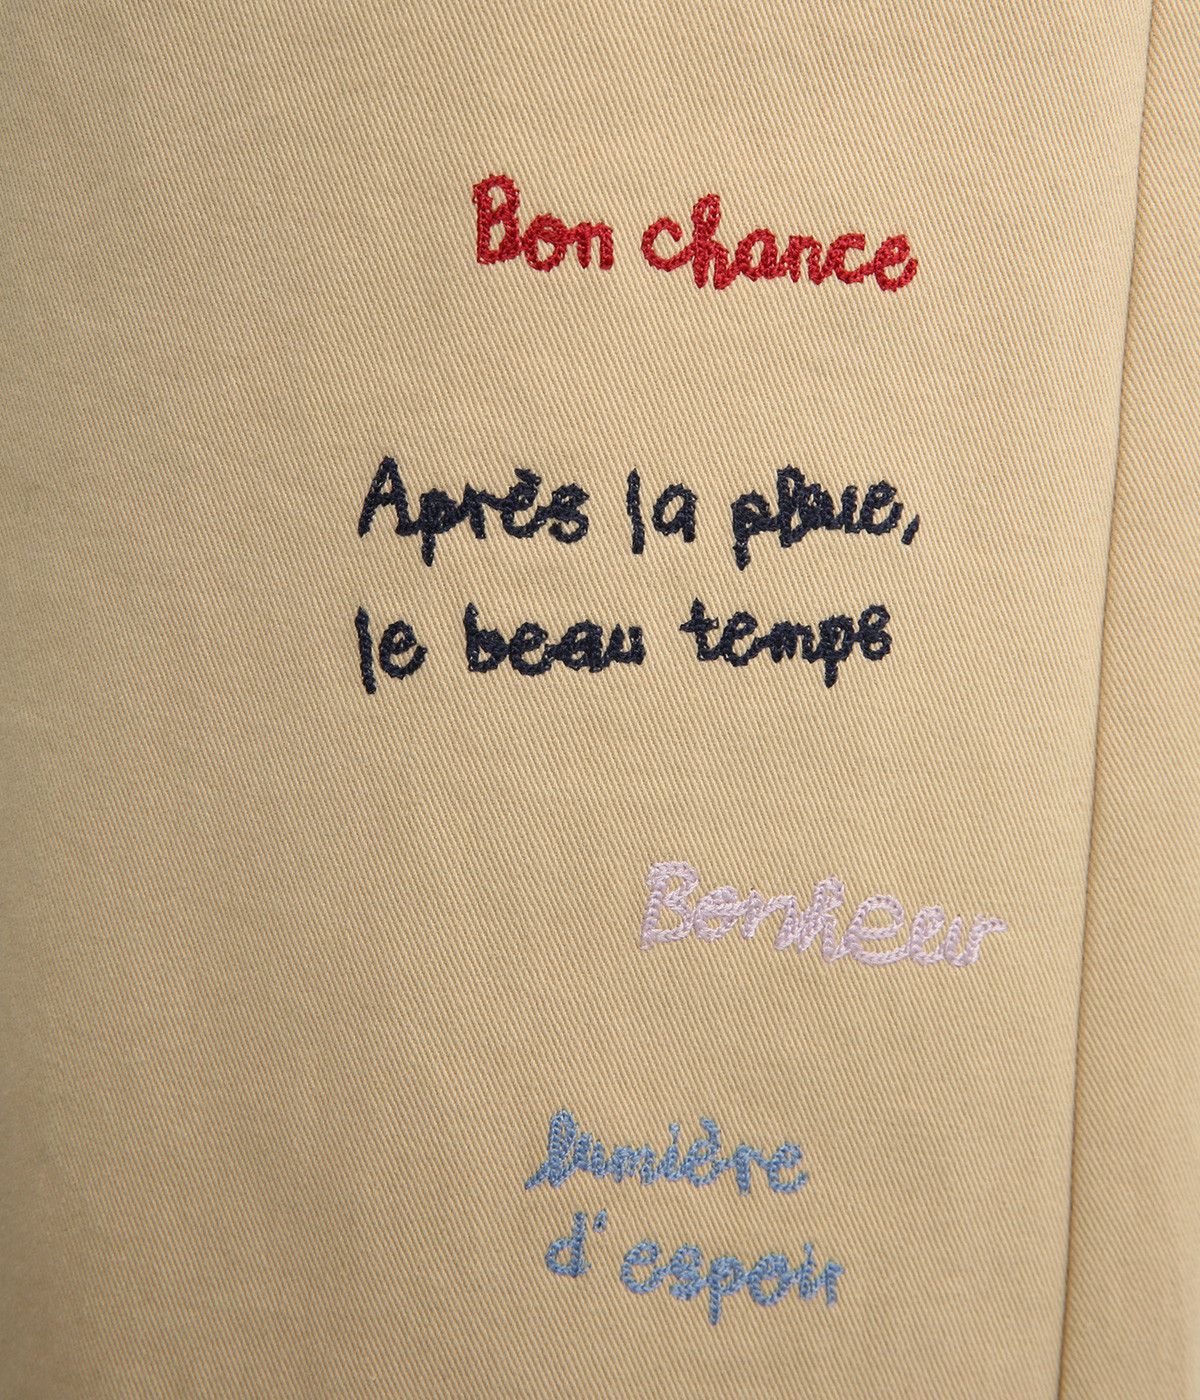 Bon chance
Après la pluie,
le beau temps
Bonheur
lumière
d'espoir